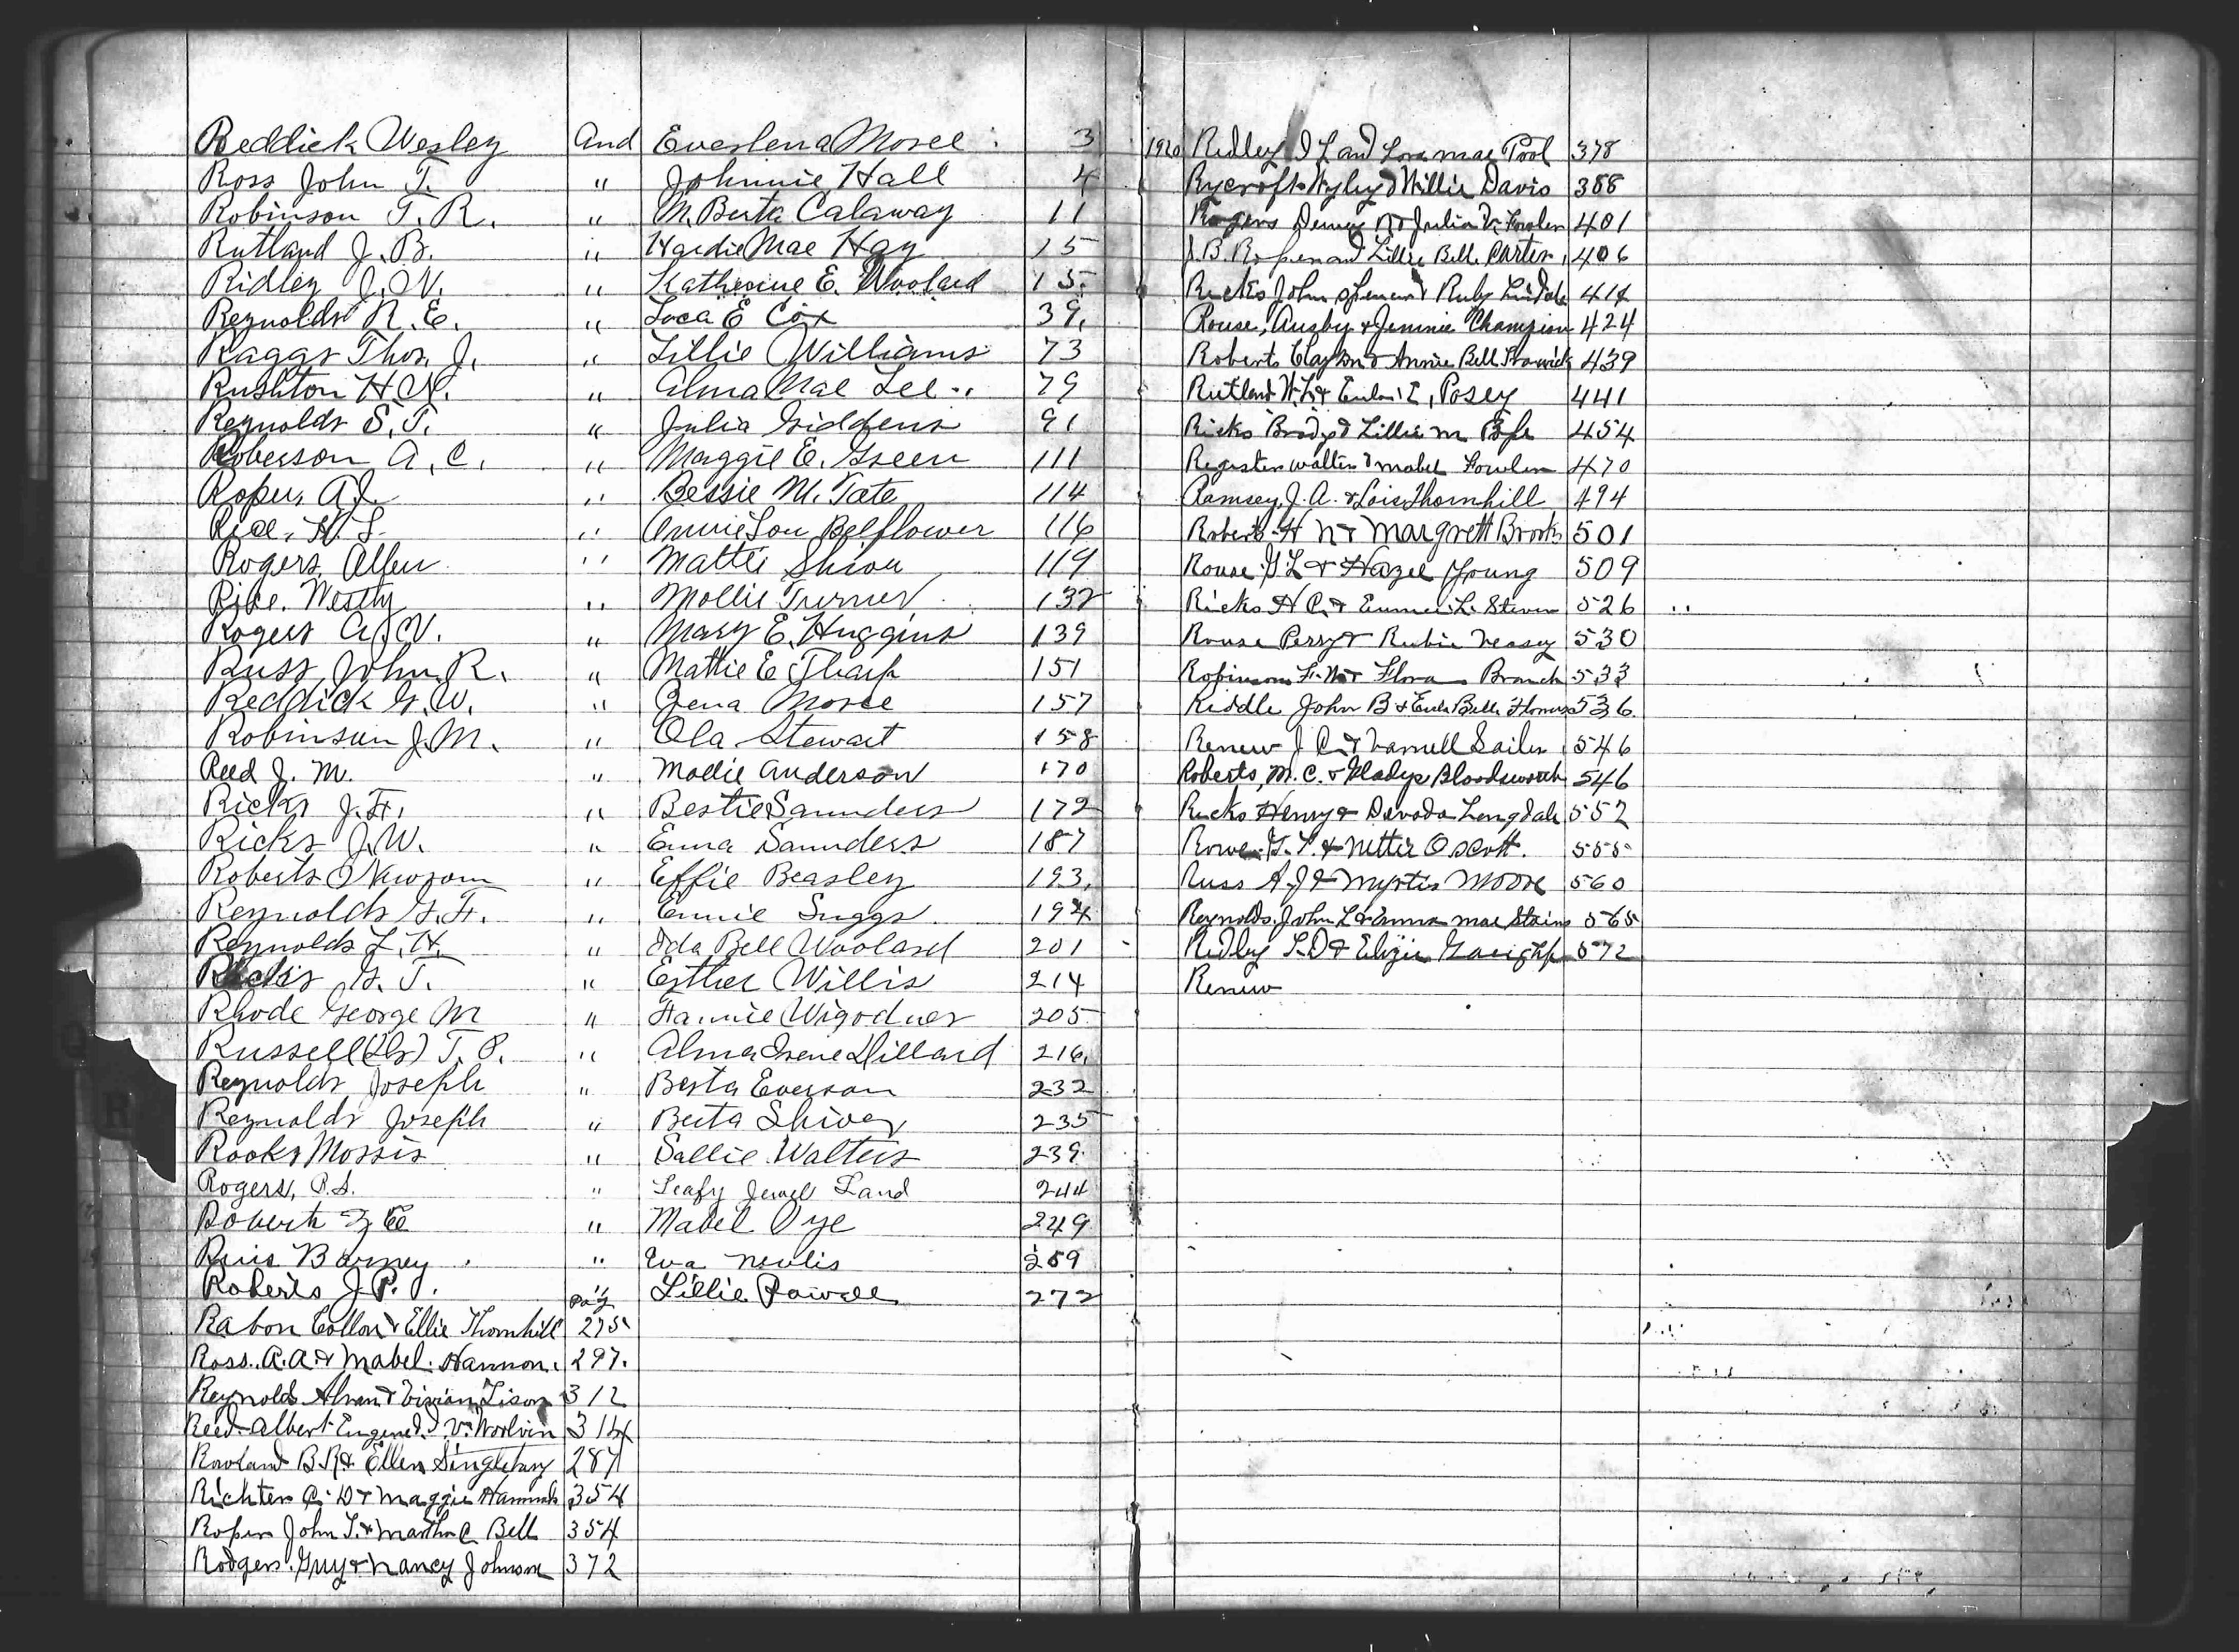 Reddick Wesley And Everlena Morel 3
Ross John T. " Johnnie Hall 4
Robinson T. R. " M. Berta Calaway 11
Rutland J. B. " Hardie Mae Hay 15
Ridley J. W. " Katherine E. Woolard 15
Reynolds R. E. " Loca E Cox 39
Raggs Thos. J. " Lillie Williams 73
Rushton H. N. " Alma Mae Lee 79
Reynolds S. T. " Julia Giddens 91
Roberson A. C. " Maggie E. Green 111
Roper, A. J. " Bessie M. Tate 114
Rice, H. L. " Annie Lou Belflower 116
Rogers, Allen " Mattie Shiver 119
Mollie Turner 132
Rogers A. W. " Mary E. Huggins 139
Russ John R. " Mattie E Tharp 151
Reddick G. W. " Rena Moree 157
Robinson J. M. " Ola Stewart 158
Reed J. M. " Modie Anderson 170
Ricks J. H. " Bestie Saunders 172
Ricks J. W. " Enna Saunders 187
Roberts Newsom " Effie Beasley 193
Reynolds G. H. " Ennie Suggs 194
Reynolds L. H. " Ida Bell Woolard 201
Ricks G. T. " Esther Willis 214
Rhode George M " Fannie Wigodner 205
Russell (Dr) T. P. " Alma Irene Dillard 216
Reynolds Joseph " Berta Everson 232
Reynolds Joseph " Berta Shiver 235
Rooks Morris " Sallie Walters 239
Rogers, P. S. " Leafy Jewell Land 244
Roberts " Mabel Pye 249
Barney " Eva 259
Roberts J. P. " Lillie Powell 272
Pag
Rabon Collon & Ellie Thornhill 275
Ross. A. A. & Mabel. Hannon. 297.
Reynolds Alvan & Vivian Lison 312
Reed Albert Eugene & J. V. Worlvin 314
Rowland B. R & Ellen Singletary 287
Richter C. D & Maggie 354
Roper John T. & Martha C Bell 354
Rodgers. Guy & Nancy Johnson 372
1920 Ridley I L and Lora mae Pool 378
Rycroft Wyley & Willie Davis 388
Rogers & Julia V. Fowler 401
J. B. Roper and Lillie Bell Carter 406
Ricks John Spencer & Ruby 414
Rouse, Ausby & Jennie Champion 424
Roberts Clayton & Annie Bell 439
Rutland W. L. & Eula E, Posey 441
Ricks & Lillie M 454
Register Walter & Mabel Fowler 470
Ramsey, J. A. & Lois Thornhill 494
Roberts H N & Margrett Brooks 501
Rouse G L & Hazel Young 509
Ricks H C. & L. 526
Rouse Perry & Rubie Veasey 530
Robinson F. W & Flora Branch 533
Riddle John B & Eula Belle 536
Renew J C. & Varnell Sailer 546
Roberts, M. C. & Gladys Bloodsworth 546
Ricks Henry & Davada Langdale 552
Rowe. G. T. & Nettie O Scott. 555
Russ A. J & Myrtis Moore 560
Reynolds. John L & Emma Mae 565
Ridley L. D & 572
Renew
R